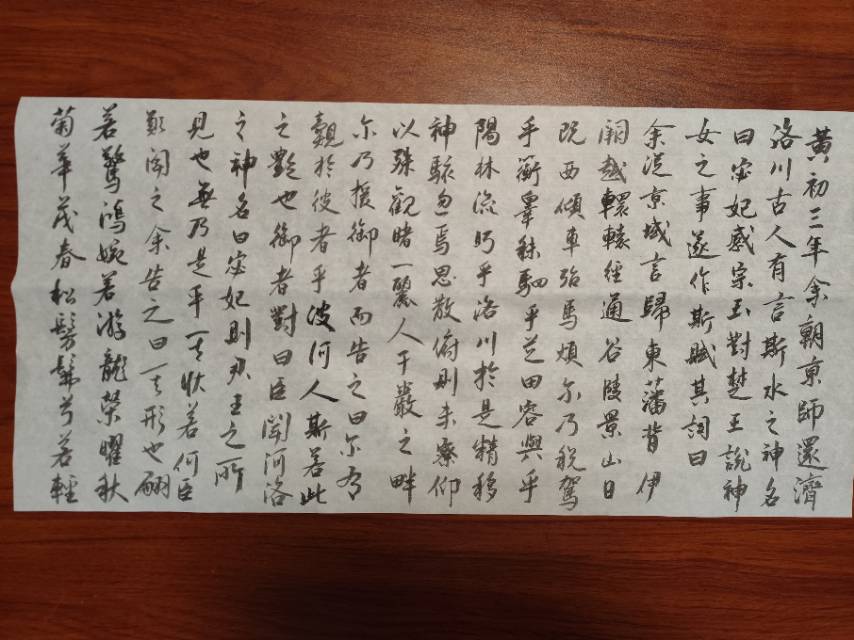 黄初三年余朝京師還濟
洛川古人有言斯水之神名
曰宓妃感宗玉對楚王說神
女之事遂作斯賦其詞曰
余從京域言歸東藩背伊
闕越轘轅經通谷陵景山日
既西傾車殆馬煩尔乃税駕
乎蘅皋秣駟乎芝田容與乎
陽林流眄乎洛川於是精移
神駭忽焉思散俯則未察仰
以殊觀睹一麗人于巖之畔
尔乃援御者而告之曰尔有
覿於彼者乎彼何人斯若此
之艷也御者對曰臣聞河洛
之神名曰宓妃則君王之所
見也無乃是乎其狀若何臣
願聞之余告之曰其形也翩
若驚鴻婉若游龍榮曜秋
菊華茂春松髣髴兮若輕